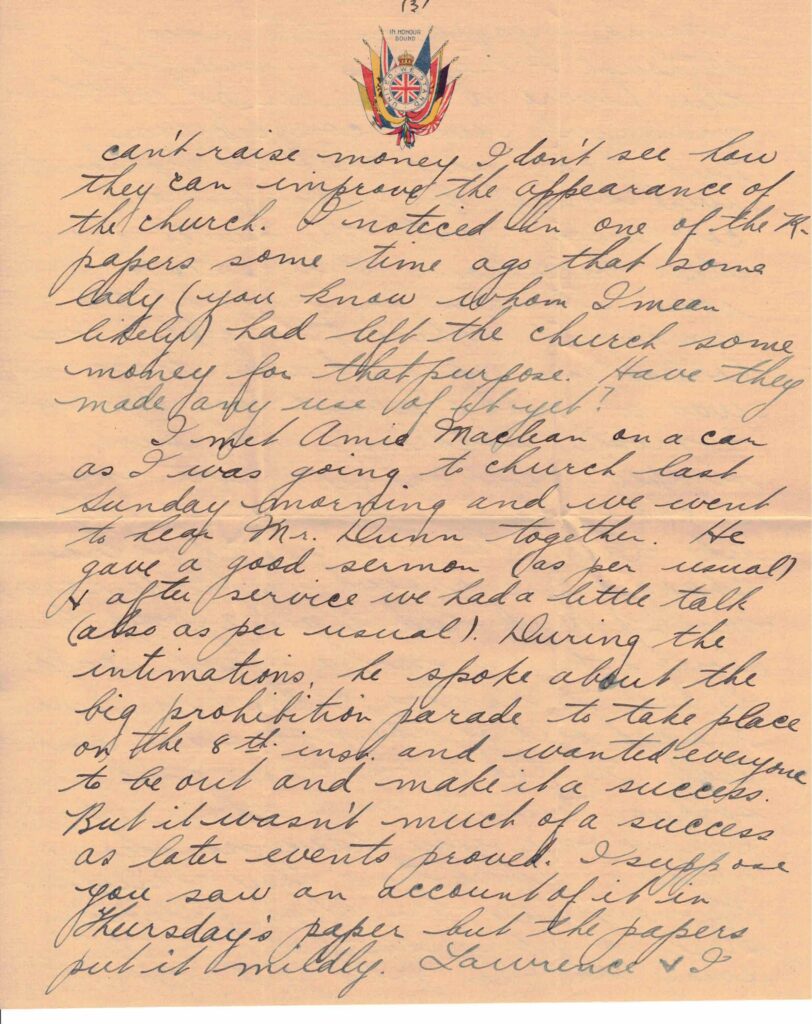 (3)
IN HONOUR
BOUND
UNITED WE STAND
can't raise money I don't see how
they can improve the appearance of
the church. I noticed in one of the K-
papers some time ago that some
lady (you know whom I mean
likely) had left the church some
money for that purpose. Have they
made any use of it yet?
I met Amie Maclean on a car
as I was going to church last
Sunday morning and we went
to hear Mr. Dunn together. He
gave a good sermon (as per usual)
& after service we had a little talk
(also as per usual). During the
intimations, he spoke about the
big prohibition parade to take place
on the 8th. inst. and wanted everyone
to be out and make it a success.
But it wasn't much of a success
as later events proved. I suppose
you saw an account of it in
Thursday's paper but the papers
put it mildly. Lawrence & I